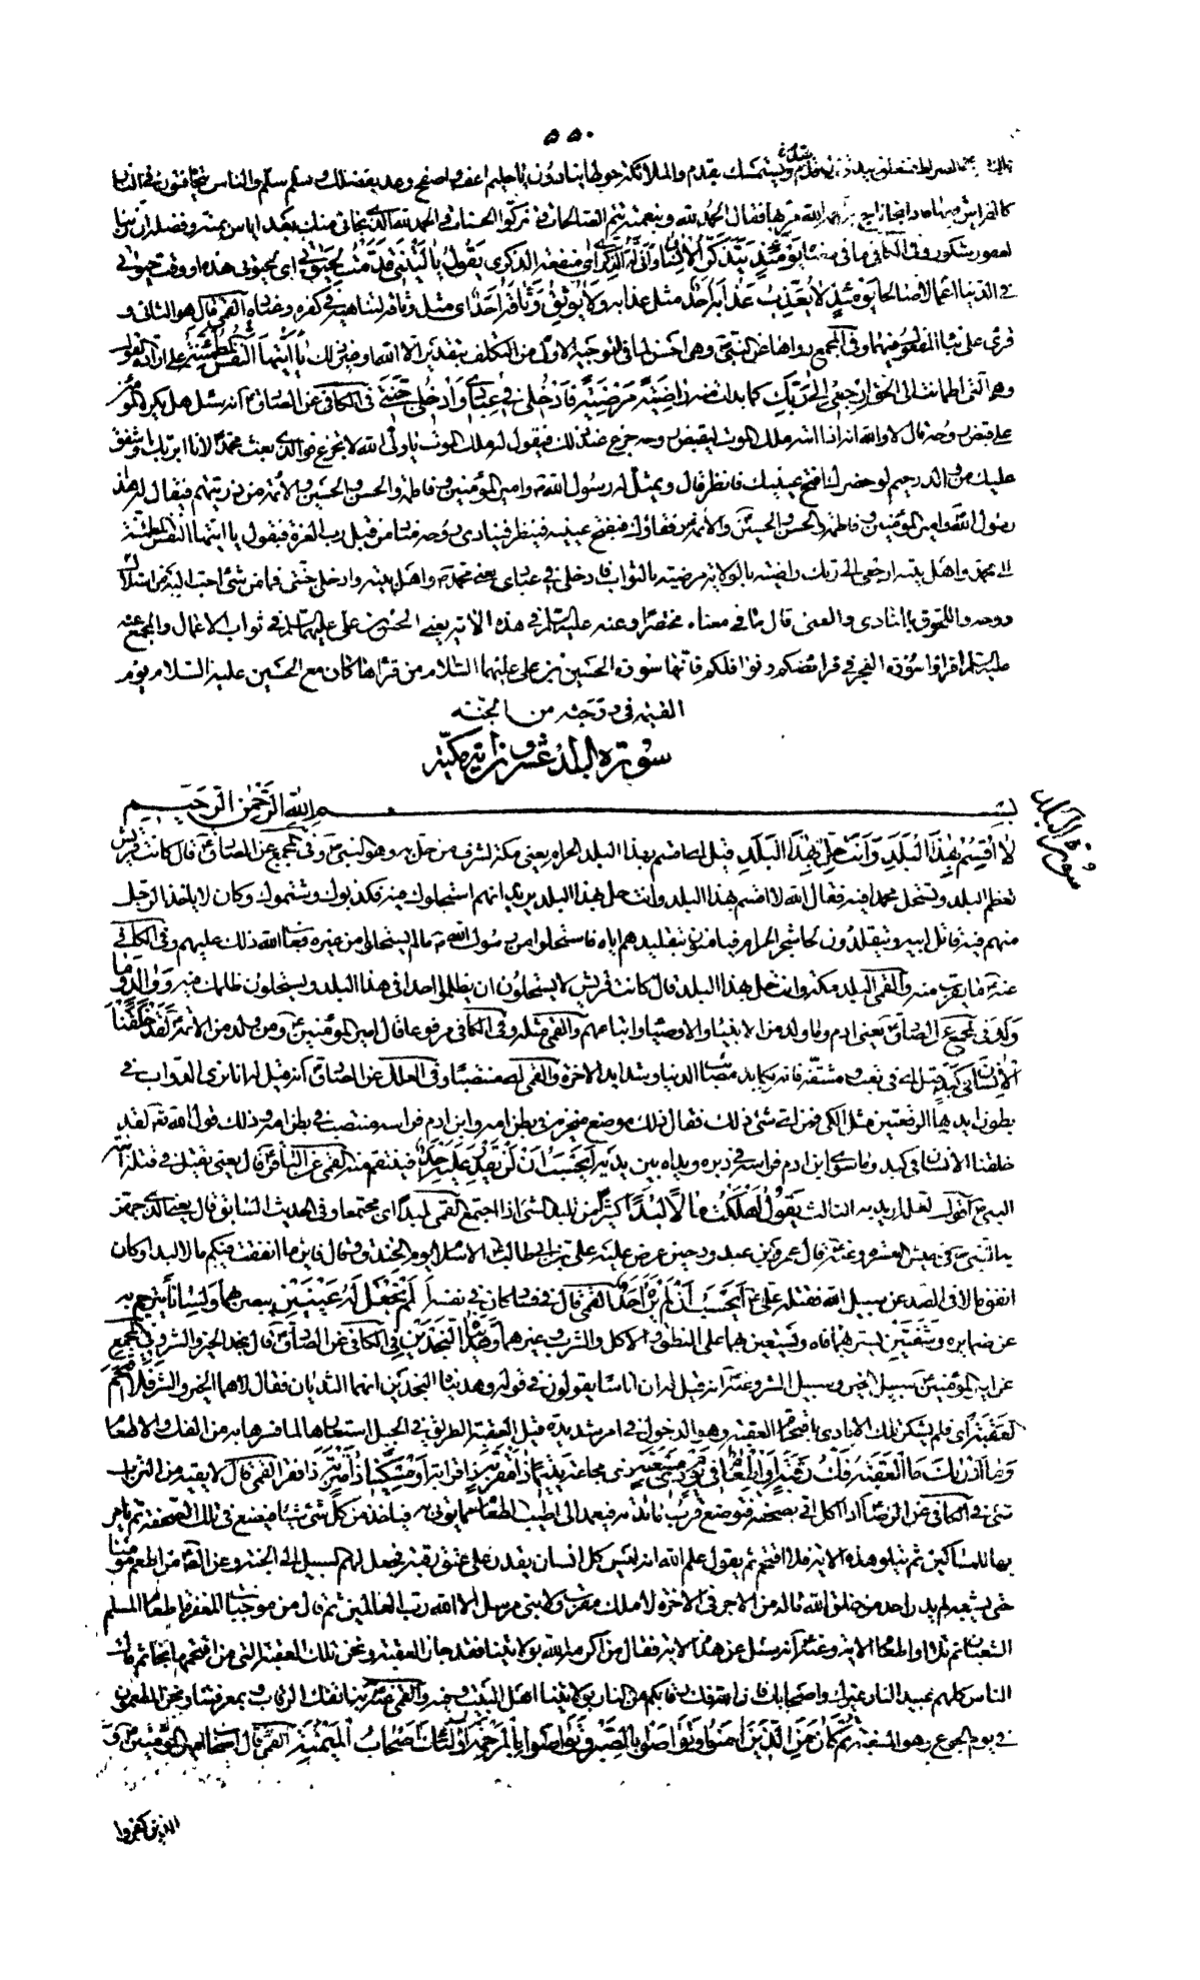 ٥٥٠
والملائكة حولها ينادون يا حليم اعف واصفح وعد بفضلك وسلم سلم والناس يتهافتون في النار
كالفراش فقال الحمد لله وبنعمته تتم الصالحات وتزكوا الحسنات والحمد لله الذي نجاني منك بعد اياس بمنه وفضله ان ربنا
لغفور شكور وفي الكافي ما في معناه يومئذ يتذكر الانسان وانى له الذكرى اي منفعة الذكرى يقول يا ليتني قدمت لحيوتي اي لحيوتي هذه او وقت حيوتي
في الدنيا اعمالا صالحة فيومئذ لا يعذب عذابه احد مثل عذابه ولا يوثق وثاقه احد اي مثل وثاقه لتناهيه في كفره وعناده القمي قال هو الثاني و
قرئ على بناء المفعول فيهما وفي المجمع رواها عن النبي ص وهي احسن يا ايتها النفس المطمئنة على ارادة القول
وهي التي اطمانت الى الحق ارجعي الى ربك كما بدات منه راضية مرضية فادخلي في عبادي وادخلي جنتي في الكافي عن الصادق ع انه سئل هل يكره المؤمن
على قبض روحه قال لا والله انه اذا اتاه ملك الموت ليقبض روحه جزع عند ذلك فيقول له ملك الموت يا ولي الله لا تجزع فوالذي بعث محمدا لانا ابر بك واشفق
عليك من والد رحيم لو حضرك افتح عينيك فانظر قال ويمثل له رسول الله ص وامير المؤمنين وفاطمة والحسن والحسين والائمة من ذريتهم فيقال له هذا
رسول الله وامير المؤمنين وفاطمة والحسن والحسين والائمة رفقاؤك فيفتح عينيه فينظر فينادي روحه مناد من قبل رب العزة فيقول يا ايتها النفس المطمئنة
الى محمد واهل بيته ارجعي الى ربك راضية بالولاية مرضية بالثواب فادخلي في عبادي يعني محمدا واهل بيته وادخلي جنتي فما من شئ احب اليه من استلال
روحه واللحوق بالمنادي والقمي قال ما في معناه مختصرا وعنه عليه السلم في هذه الاية يعني الحسين بن علي عليهما السلم في ثواب الاعمال والمجمع عنه
عليه السلم اقرؤا سورة الفجر في فرائضكم ونوافلكم فانها سورة الحسين بن علي عليهما السلام من قراها كان مع الحسين عليه السلام يوم
القيمة في درجته من الجنة
سورة البلد عشرون اية مكية
بسم الله الرحمن الرحيم
سورة البلد
لا اقسم بهذا البلد وانت حل بهذا البلد قيل اي اقسم بهذا البلد الحرام يعني مكة لشرف من حل به وهو النبي ص وفي المجمع عن الصادق ع قال كانت قريش
تعظم البلد وتستحل محمدا فيه فقال الله لا اقسم بهذا البلد وانت حل بهذا البلد يريد انهم استحلوك فيه فكذبوك وشتموك وكان لا ياخذ الرجل
منهم فيه قاتل ابيه ويتقلدون لحاء شجر الحرم فيامنون بتقليدهم اياه فاستحلوا من رسول الله ص ما لم يستحلوا من غيره فعاب الله ذلك عليهم وفي الكافي
عنه ع ما يقرب منه والقمي البلد مكة وانت حل بهذا البلد قال كانت قريش لا يستحلون ان يظلموا احدا في هذا البلد ويستحلون ظلمك فيه ووالد وما
ولد في المجمع عن الصادق ع يعني ادم وما ولد من الانبياء والاوصياء واتباعهم والقمي مثله وفي الكافي مرفوعا قال امير المؤمنين ع ومن ولد من الائمة لقد خلقنا
الانسان في كبد قيل اي في تعب ومشقة فانه يكابد مصائب الدنيا وشدايد الاخرة والقمي اي منتصبا وفي العلل عن الصادق ع انه قيل له انا نرى الدواب في
بطون ايديها الرقعتين مثل الكي فمن اي شئ ذلك فقال ذلك موضع منخريه في بطن امه وابن ادم فراسه منتصب في بطن امه وذلك قول الله تع لقد
خلقنا الانسان في كبد وما سوى ابن ادم فراسه في دبره ويداه بين يديه ايحسب ان لن يقدر عليه احد فينتقم منه القمي عن الباقر ع قال يعني يقتل في قتله ابنة
النبي ص اقول لعله اريد به الثالث يقول اهلكت مالا لبدا كثيرا من تلبد الشئ اذا اجتمع القمي لبدا اي مجتمعا وفي الحديث السابق قال يعني الذي جهز
به النبي ص في جيش العشرة وعنه ع قال عمرو بن عبد ود حين عرض عليه علي بن ابي طالب ع الاسلام يوم الخندق وقال فاين ما انفقت فيكم مالا لبدا وكان
انفق مالا في الصد عن سبيل الله فقتله علي ع ايحسب ان لم يره احد القمي قال في فساد كان في نفسه الم نجعل له عينين يبصر بهما ولسانا يترجم به
عن ضمايره وشفتين يستر بهما فاه ويستعين بهما على النطق والاكل والشرب وغيرهما وهديناه النجدين في الكافي عن الصادق ع قال نجد الخير والشر وفي المجمع
عن امير المؤمنين ع سبيل الخير وسبيل الشر وعنه ع انه قيل له ان اناسا يقولون في قوله وهديناه النجدين انهما الثديان فقال لا هما الخير والشر فلا اقتحم
العقبة اي فلم يشكر تلك الايادي باقتحام العقبة وهو الدخول في امر شديد قيل العقبة الطريق في الجبل استعارها لما فسرها به من الفك والاطعام
وما ادراك ما العقبة فك رقبة او اطعام في يوم ذي مسغبة ذي مجاعة يتيما ذا مقربة ذا قرابة او مسكينا ذا متربة ذا فقر القمي قال لا يقيه من التراب
شئ وفي الكافي عن الرضا ع اذا اكل اتى بصحفة فتوضع قرب مائدته فيعمد الى اطيب الطعام مما يؤتى به فياخذ من كل شئ شيئا فيضع في تلك الصحفة ثم يامر
بها للمساكين ثم يتلو هذه الاية فلا اقتحم ثم يقول علم الله انه ليس كل انسان يقدر على عتق رقبة فجعل لهم السبيل الى الجنة وعن الصادق ع من اطعم مؤمنا
حتى يشبعه لم يدر احد من خلق الله ماله من الاجر في الاخرة لا ملك مقرب ولا نبي مرسل الا الله رب العالمين ثم قال من موجبات المغفرة اطعام المسلم
السغبان ثم تلا او اطعام الاية وعنه ع انه سئل عن هذه الاية فقال من اكرمه الله بولايتنا فقد جاز العقبة ونحن تلك العقبة التي من اقتحمها نجا ثم قال
الناس كلهم عبيد النار غيرك واصحابك فان الله فك رقابكم من النار بولايتنا اهل البيت والقمي عنه ع بنا تفك الرقاب وبمعرفتنا ونحن المطعمون
في يوم الجوع وهو المسغبة ثم كان من الذين امنوا وتواصوا بالصبر وتواصوا بالمرحمة اولئك اصحاب الميمنة القمي قال اصحاب امير المؤمنين ع و
الذين كفروا